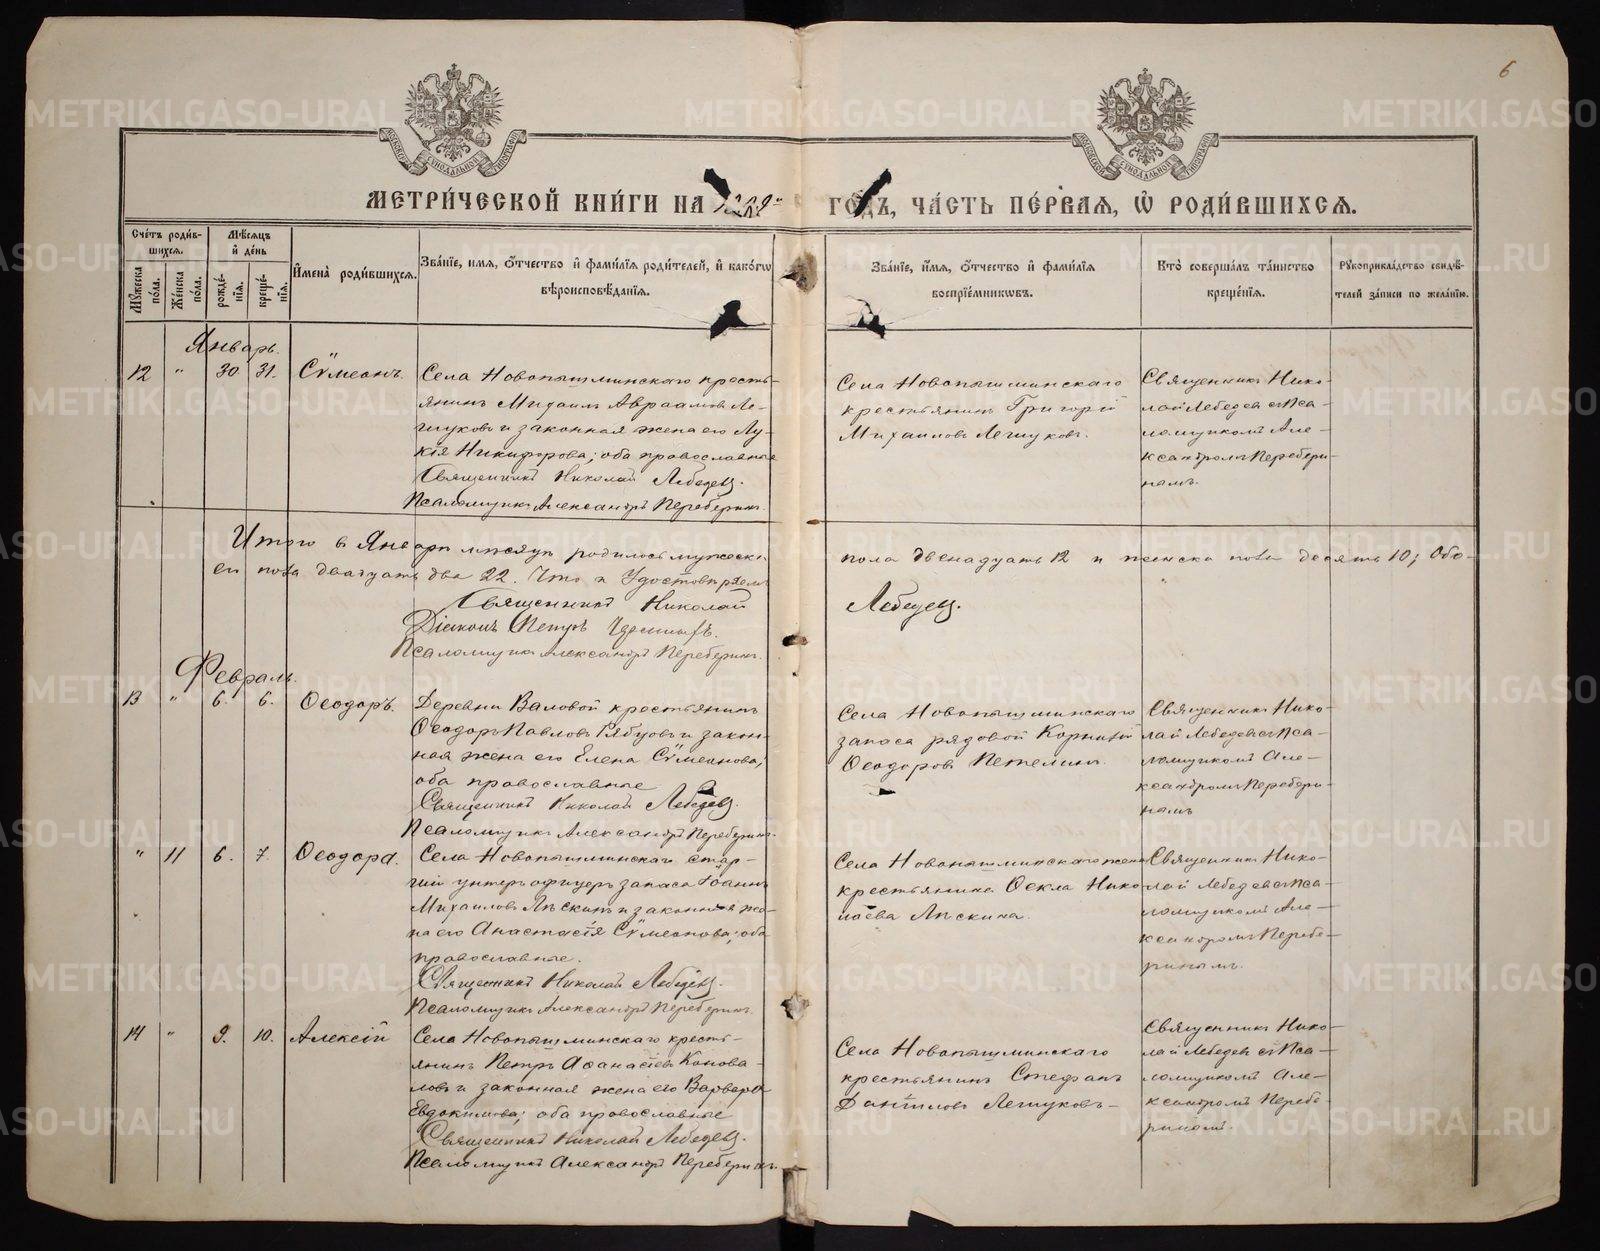 6
МЕТРИ́ЧЕСКОЙ КНИ́ГИ НА 1889й ГОДЪ, ЧА́СТЬ ПЕ́РВАЯ, Ѡ РОДИ́ВШИХСЯ.
Сче́тъ роди́в-
шихся.
Мѣ́сяцъ
и҆ де́нь
Му́жеска по́ла.
Же́нска по́ла.
рожде́-
нїя.
креще́-
нїя.
И҆мена̀ роди́вшихся.
Зва́нїе, имя, ѻ҆́тчество и҆ фами́лїя роди́телей, и҆ како́гѡ
вѣроисповѣ́данїя.
Зва́нїе, и҆́мя, ѻ҆́тчество и҆ фами́лїя
воспрїе́мникѡвъ.
Кто̀ соверша́лъ та́инство
креще́нїя.
Рꙋкоприкла́дство свидѣ́-
телей за́писи по жела́нїю.
Январь.
12 " 30 31. Сѵмеонъ.
Села Новопышминскаго кресть-
янинъ Михаилъ Авраамовъ Ле-
гчуковъ и законная жена его Лу-
кія Никифорова; оба православные
Священникъ Николай Лебедевъ.
Псаломщикъ Александръ Переберинъ.
Села Новопышминскаго
крестьянинъ Григорій
Михаиловъ Легчуковъ.
Священникъ Нико-
лай Лебедевъ съ Пса-
ломщикомъ Але-
ксандромъ Перебери-
нымъ.
Итого в Январѣ мѣсяцѣ родилось мужеска
пола двенадцать 12 и женска пола десять 10; Обо-
его пола двадцать два 22. Что и Удостовѣряемъ
Священникъ Николай
Лебедевъ.
Діаконъ Петръ
Псаломщикъ Александръ Переберинъ.
Февраль.
13 " 6. 6. Ѳеодоръ.
Деревни Валовой крестьянинъ
Ѳеодоръ Павловъ Рябцовъ и закон-
ная жена его Елена Сѵмеонова;
оба православные
Священникъ Николай Лебедевъ.
Псаломщикъ Александръ Переберинъ.
Села Новопышминскаго
запаса рядовой Корнилій
Ѳеодоровъ Петелинъ.
Священникъ Нико-
лай Лебедевъ съ Пса-
ломщикомъ Але-
ксандромъ Перебери-
нымъ
" 11 6. 7. Ѳеодора.
Села Новопышминскаго стар-
шій унтеръ офицеръ запаса Іоаннъ
Михаиловъ Лѣскинъ и законная же-
на его Анастасія Сѵмеонова; оба
православные.
Священникъ Николай Лебедевъ.
Псаломщикъ Александръ Переберинъ.
Села Новопышминскаго жена
крестьянина Ѳекла Нико-
лаева Лѣскина.
Священникъ Нико-
лай Лебедевъ съ Пса-
ломщикомъ Але-
ксандромъ Перебе-
ринымъ.
14 " 9. 10. Алексій
Села Новопышминскаго кресть-
янинъ Петръ Аѳанасіевъ Конова-
ловъ и законная жена его Варвара
Евдокимова; оба православные
Священникъ Николай Лебедевъ.
Псаломщикъ Александръ Переберинъ.
Села Новопышминскаго
крестьянинъ Стефанъ
Даніиловъ Легчуковъ
Священникъ Нико-
лай Лебедевъ съ Пса-
ломщикомъ Але-
ксандромъ Перебе-
ринымъ.